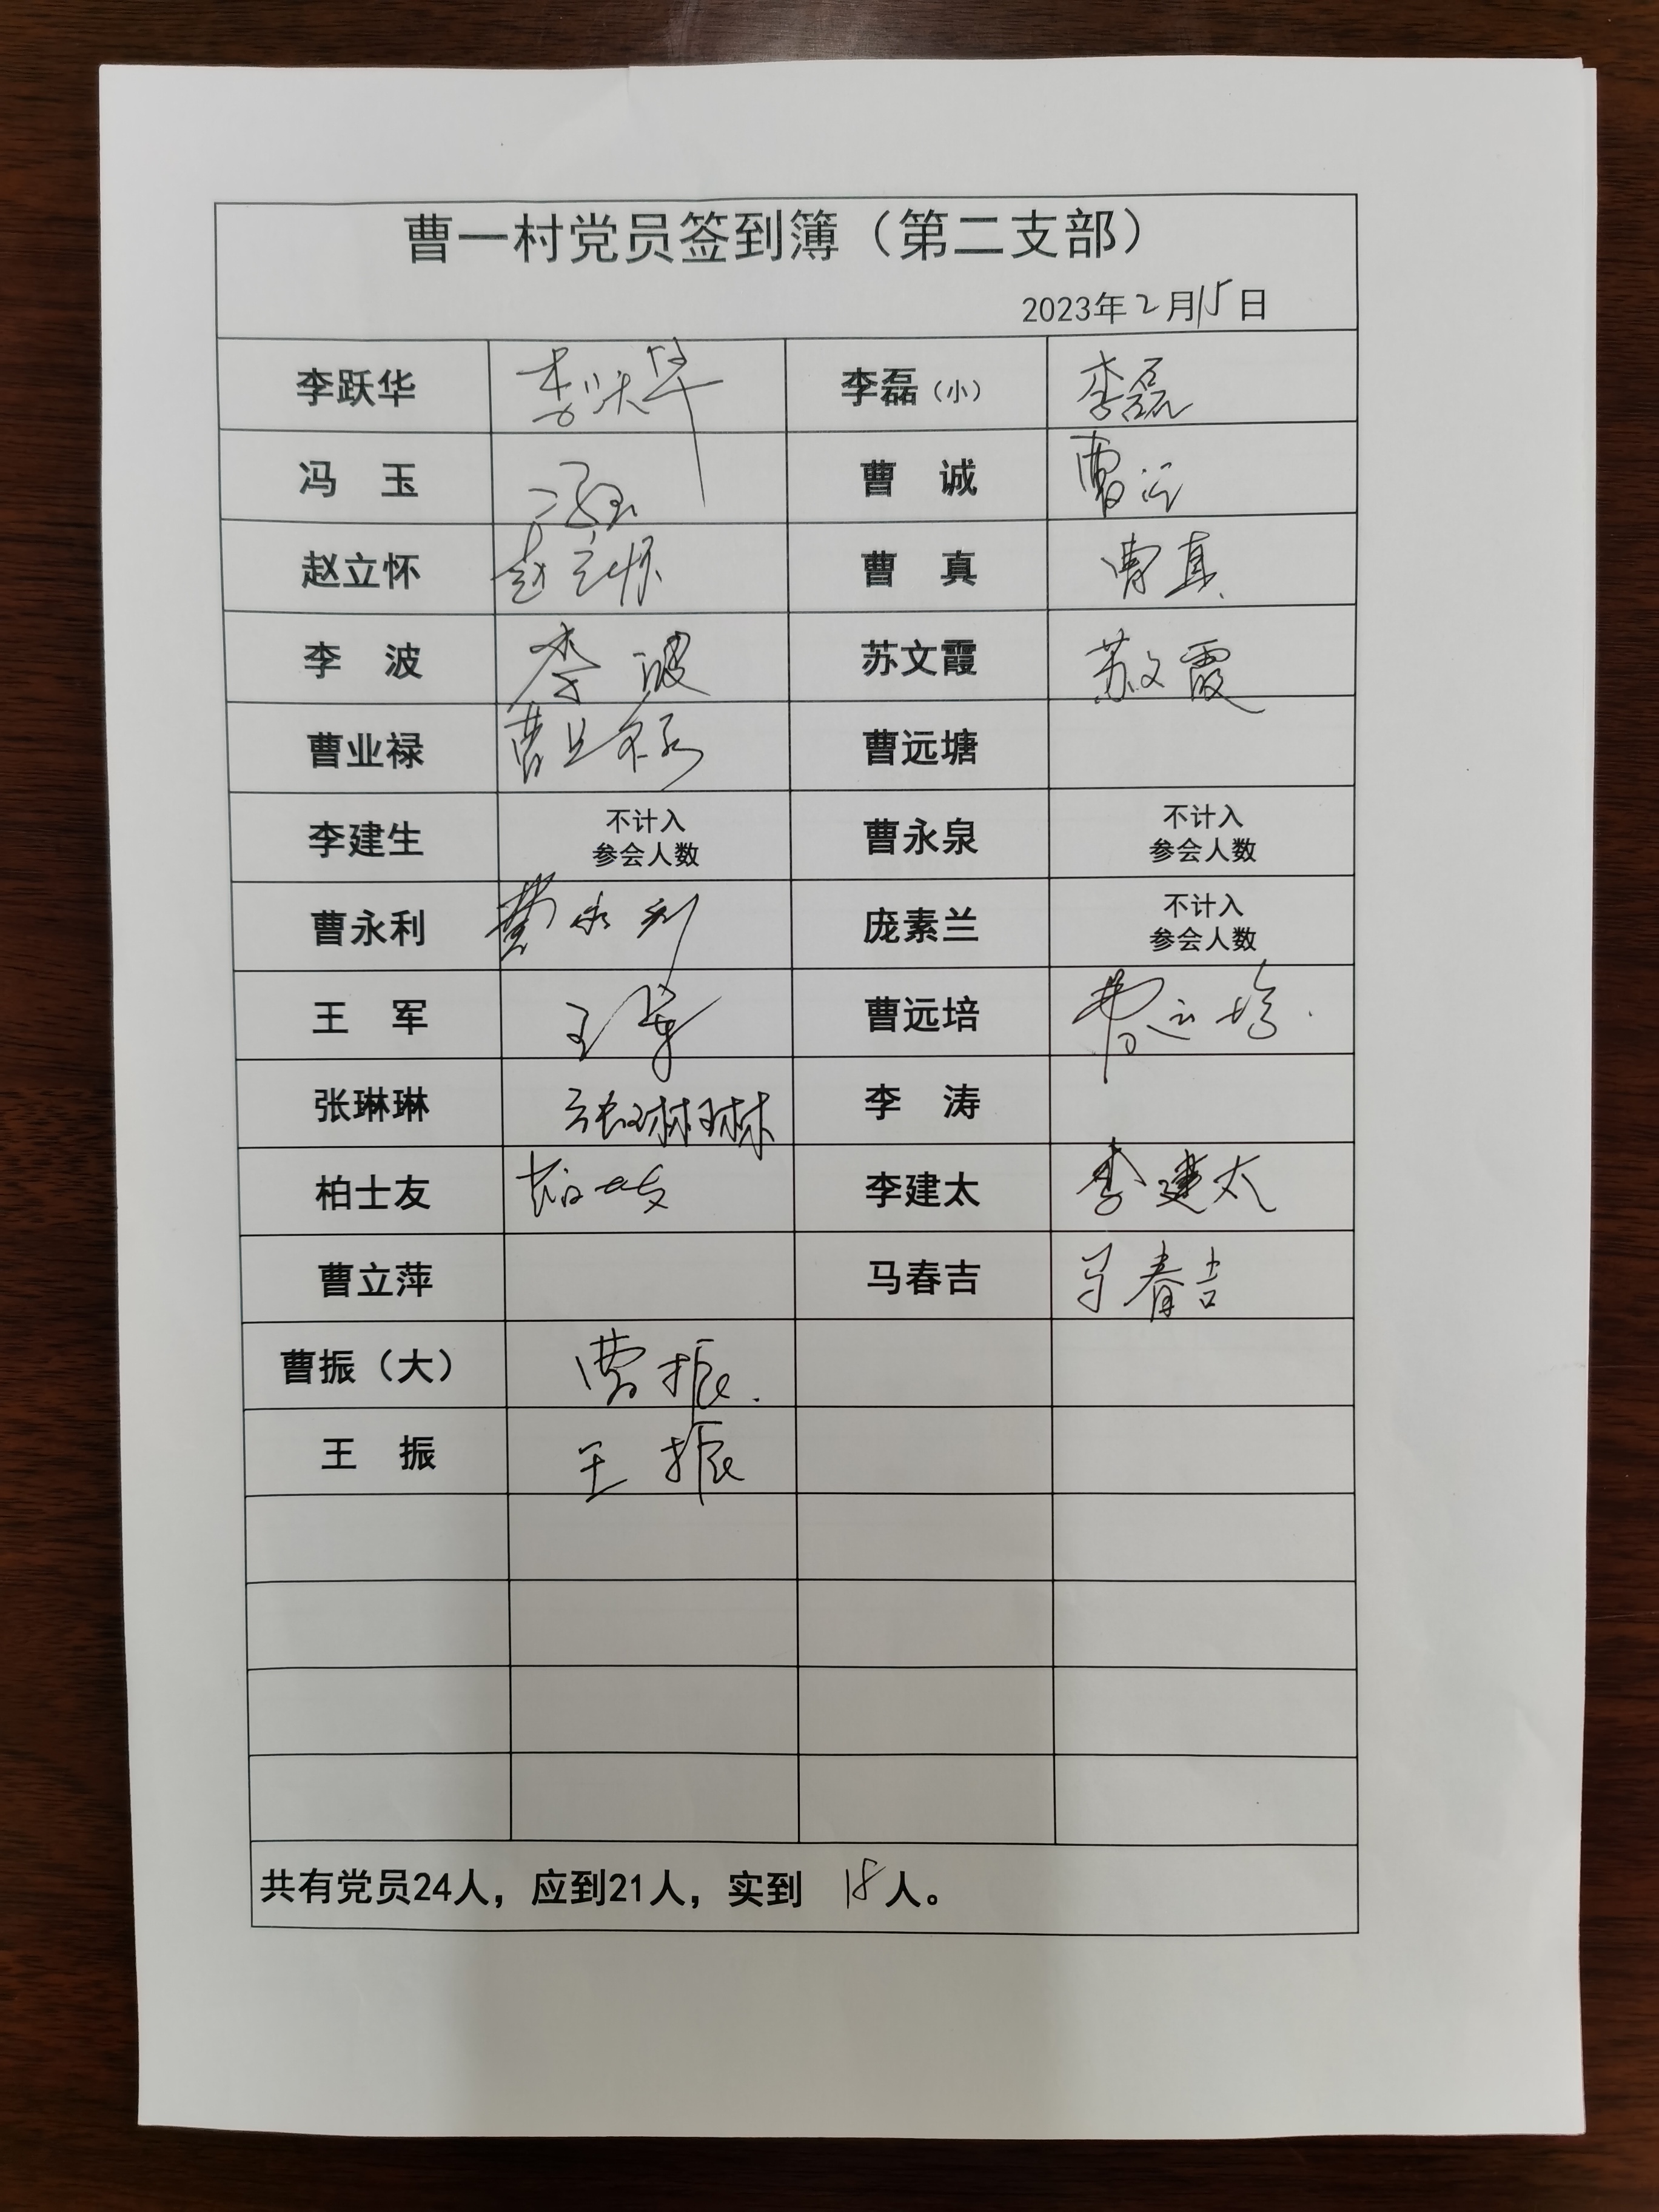 曹一村党员签到簿（第二支部）
2023年2月15日
李跃华 李跃华 李磊（小） 李磊
冯 玉 冯玉 曹 诚 曹诚
赵立怀 赵立怀 曹 真 曹真
李 波 李波 苏文霞 苏文霞
曹业禄 曹业禄 曹远塘
李建生 不计入 曹永泉 不计入
参会人数 参会人数
曹永利 曹永利 庞素兰 不计入
参会人数
王 军 王军 曹远培 曹远培
张琳琳 张琳琳 李 涛
柏士友 柏士友 李建太 李建太
曹立萍 马春吉 马春吉
曹振（大） 曹振.
王 振 王振
共有党员24人，应到21人，实到 18人。